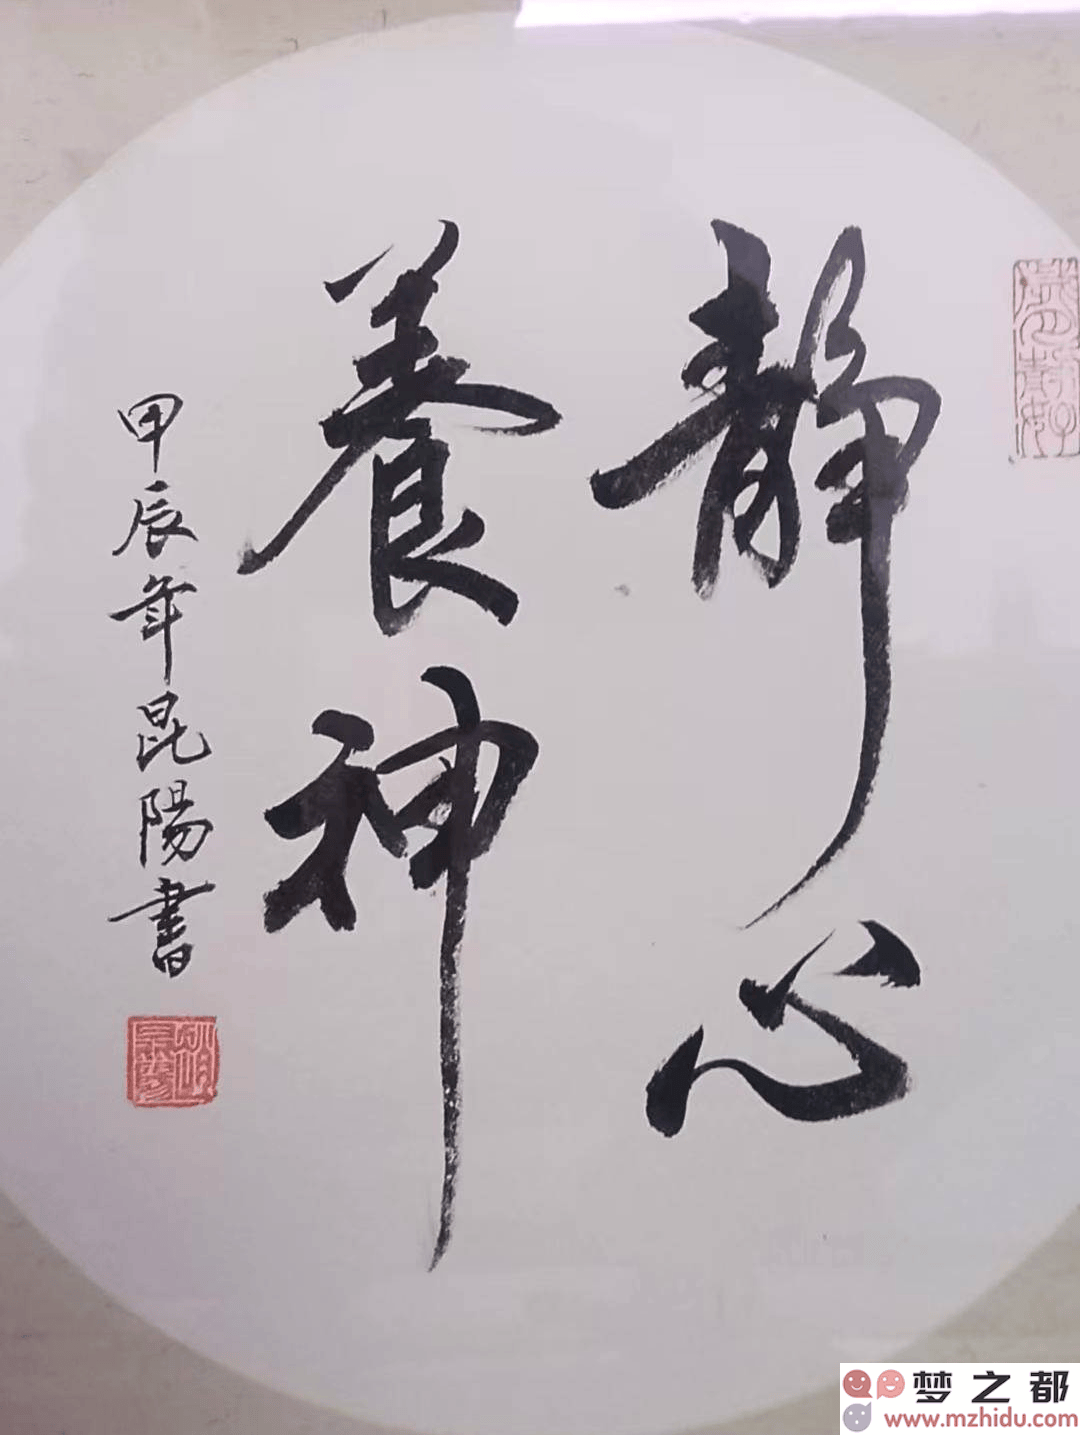 靜心
養神
甲辰年昆陽書
歲月靜好
梦之都
www.mzhidu.com